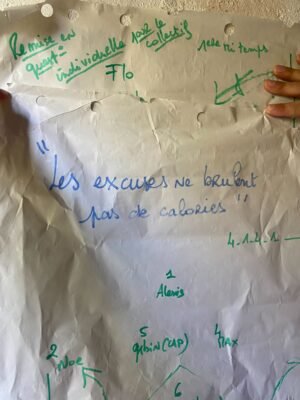 Remise en
quest°
individuelle pour le
collectif
Flo
1ere mi temps
"Les excuses ne brulent
pas de calories"
4-1-4-1
1
Alexis
5
Gybin (CAP)
4
MAX
2
6